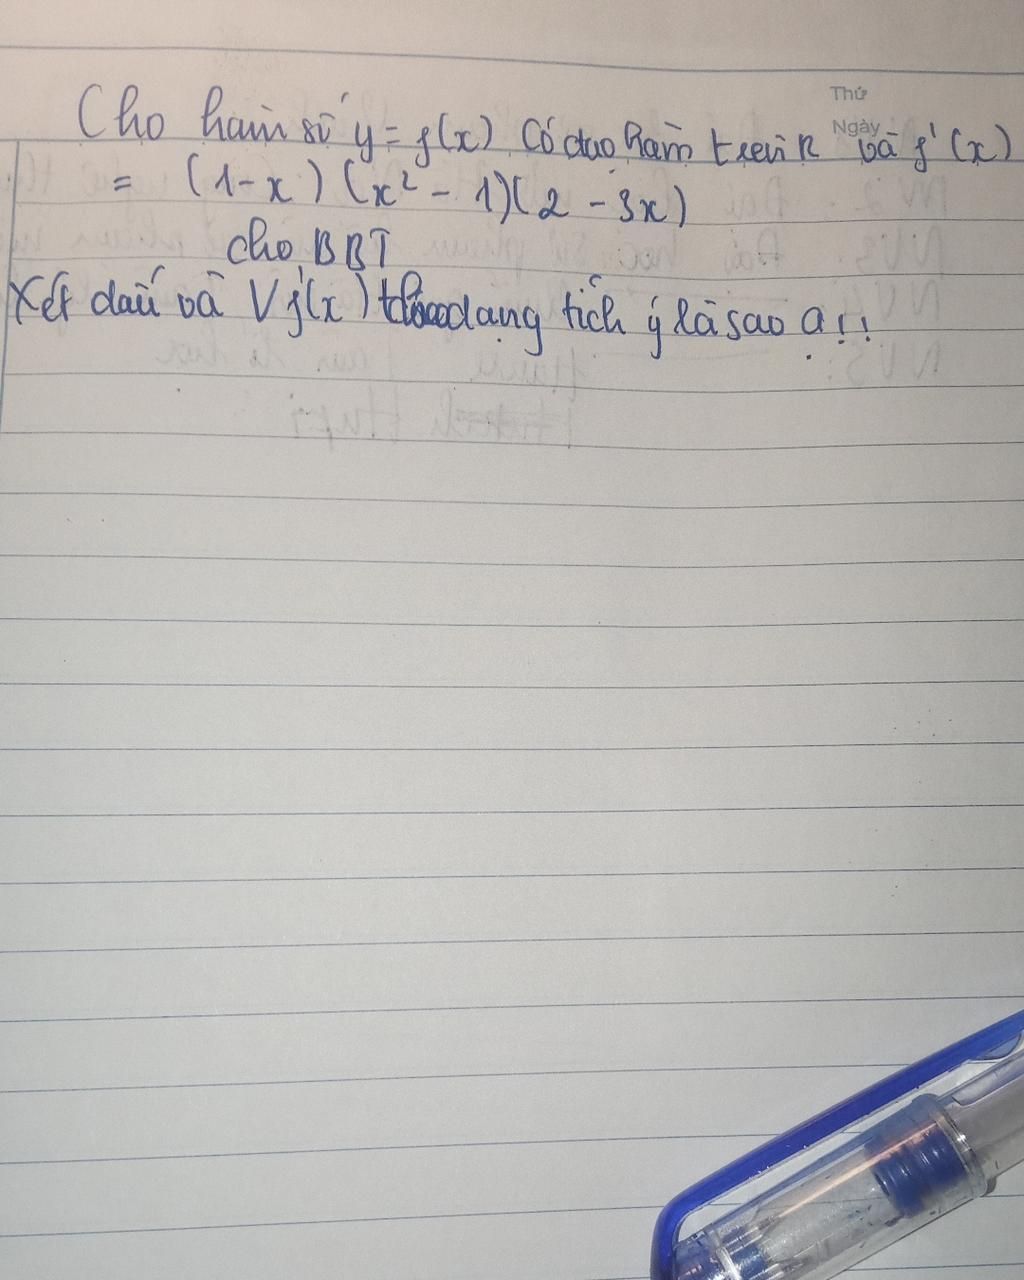 Thứ
Ngày
Cho hàm số y = f(x) Có đạo hàm trên R và f'(x)
= (1-x)(x² - 1)(2 - 3x)
cho BBT
Xét dấu và V f'(x) dạng tích ý là sao ạ!!